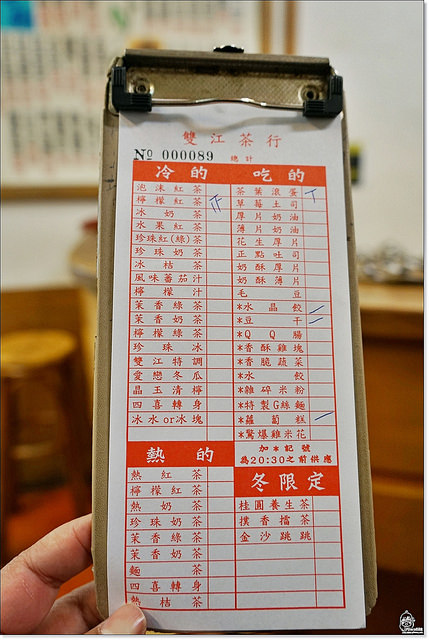 雙江茶行
No 000089 總計
冷的
泡沫紅茶
檸檬紅茶
冰奶茶
水果紅茶
珍珠紅(綠)茶
珍珠奶茶
冰桔茶
風味蕃茄汁
檸檬汁
茉香綠茶
茉香奶茶
檸檬綠茶
珍珠冰
雙江特調
愛戀冬瓜
晶玉清檸
四喜轉身
冰水or冰塊
熱的
熱紅茶
檸檬紅茶
熱奶茶
珍珠奶茶
茉香綠茶
茉香奶茶
麵茶
四喜轉身
熱桔茶
吃的
茶葉滾蛋
草莓土司
厚片奶油
薄片奶油
花生厚片
正點吐司
奶酥厚片
奶酥薄片
毛豆
*水晶餃
*豆干
*QQ腸
*香酥雞塊
*香脆蔬菜
*水餃
*雜碎米粉
*特製G絲麵
*蘿蔔糕
*驚爆雞米花
加*記號
為20:30之前供應
冬限定
桂圓養生茶
撲香擂茶
金沙跳跳